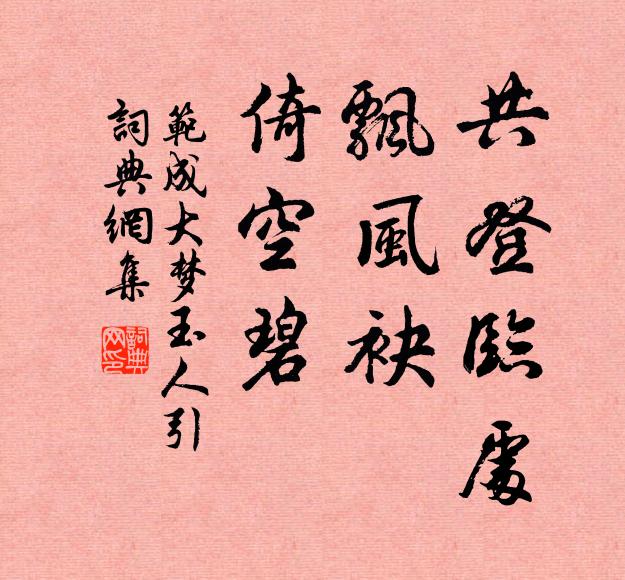 共登臨處
飄風袂
倚空碧
範成大梦玉人引
詞典網集
詞典網印